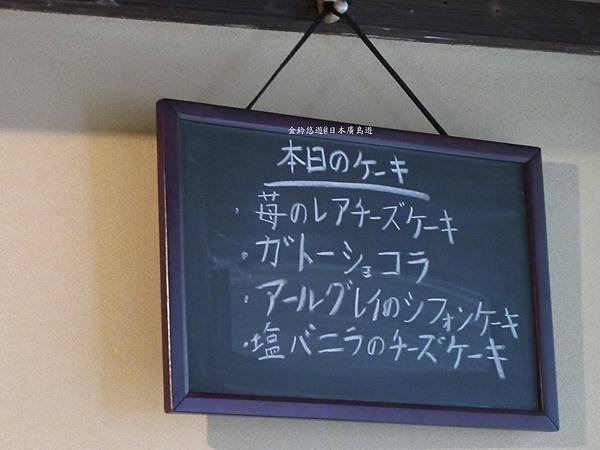 金鈴悠遊@日本廣島遊
本日のケーキ
・苺のレアチーズケーキ
・ガトーショコラ
・アールグレイのシフォンケーキ
・塩バニラのチーズケーキ